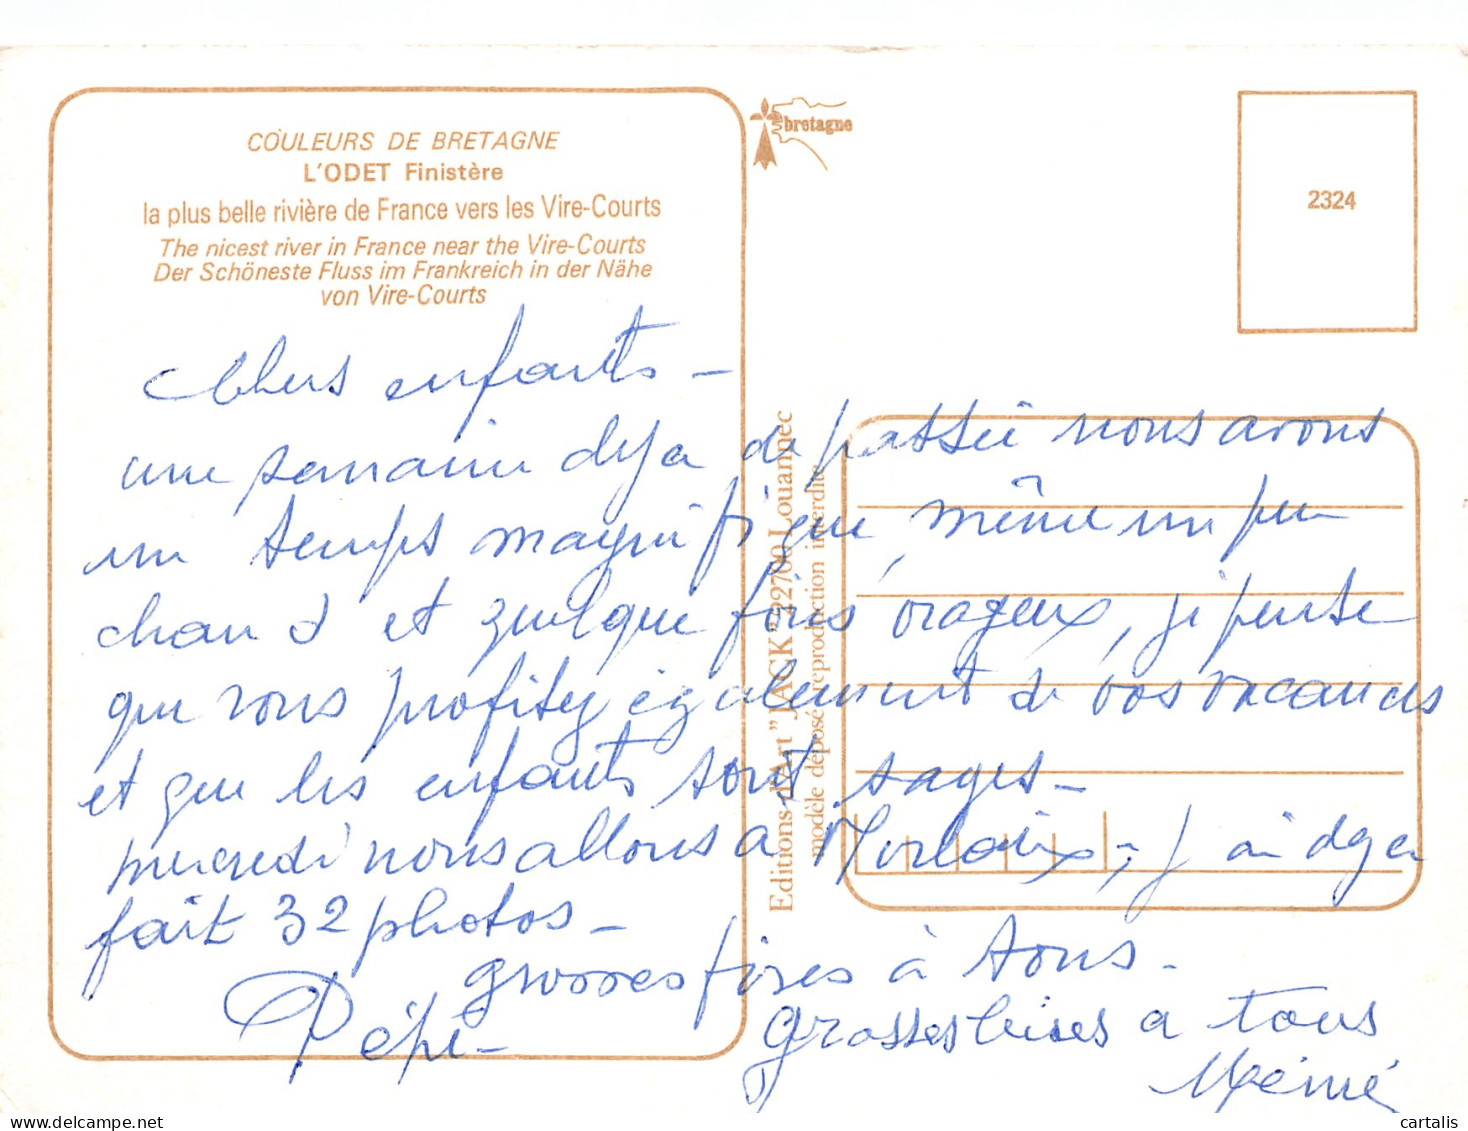 COULEURS DE BRETAGNE
L'ODET Finistère
la plus belle rivière de France vers les Vire-Courts
The nicest river in France near the Vire-Courts
Der Schöneste Fluss im Frankreich in der Nähe
von Vire-Courts
bretagne
2324
Editions d'Art "JACK" 22700 Louannec
modèle déposé reproduction interdite
Chers enfants -
une semaine deja de passée nous avons
un temps magnifique, même un peu
chaud et quelque fois orageux, je pense
que vous profitez également de vos vacances
et que les enfants sont sages -
mercredi nous allons a Morlaix -, j'ai deja
fait 32 photos -
grosses bises à tous -
Pépé -
grosses bises a tous
Mémé
cartalis